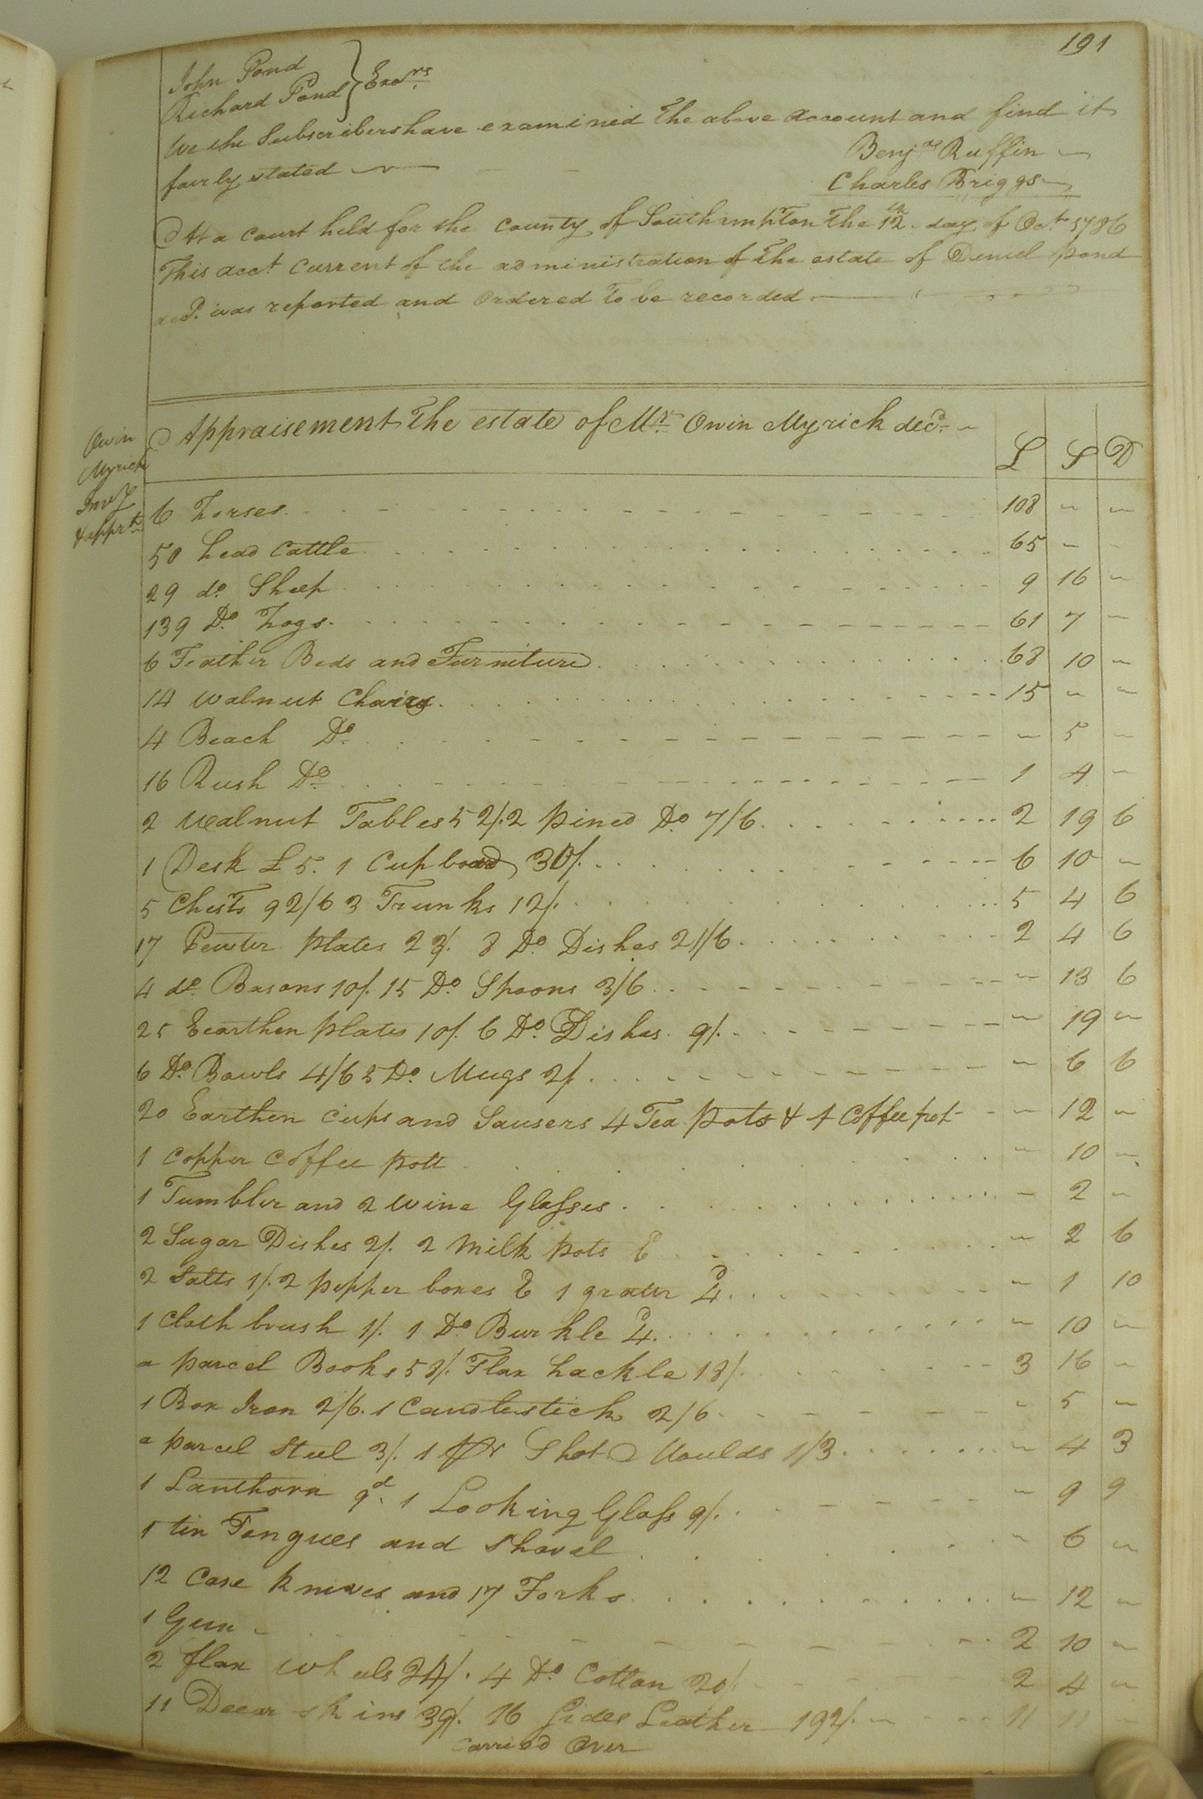 191
John Pond
Richard Pond } Exors
We the Subscribers have examined the above account and find it
fairly stated
Benja Ruffin
Charles Briggs
At a court held for the county of Southampton the 12th day of Oct 1786
This acct Current of the administration of the estate of Daniel Pond
decd. was reported and ordered to be recorded
Owin
Myrick
Invy
& apprt
Appraisement the estate of Mr. Owin Myrick decd.
L S D
6 Horses 108 - -
50 head Cattle 65 -
29 do Sheep 9 16 -
139 Do. Hogs 61 7 -
6 Feather Beds and Furniture 68 10 -
14 walnut Chairs 15 - -
4 Beach Do. - 5 -
16 Rush Do. 1 4 -
2 walnut Tables 52/. 2 pined Do 7/6 2 19 6
1 Desk £5. 1 Cupboard 30/. 6 10 -
5 Chests 92/6 3 Trunks 12/. 5 4 6
17 Pewter plates 23/. 8 Do. Dishes 21/6 2 4 6
4 do Basons 10/. 15 Do. Spoons 3/6 - 13 6
25 Earthen plates 10/. 6 Do. Dishes. 9/. - 19 -
6 Do. Bowls 4/6 5 Do. Mugs 2/ - 6 6
20 Earthen cups and Sausers 4 Tea pots & 1 Coffee pot - 12 -
1 copper coffee pott - 10 -
1 Tumbler and 2 wine Glasses - 2 -
2 Sugar Dishes 2/. 2 Milk pots 6 - 2 6
2 Salts 1/. 2 pepper boxes 6 1 grater 4d. - 1 10
1 Cloth brush 1/. 1 Do Burkle 4d. - 10 -
a parcel Books 58/. Flax hackle 18/. 3 16 -
1 Box Iron 2/6. 1 Candlestick 2/6 - 5 -
a parcel Steel 3/. 1 pr Shot Moulds 1/3 - 4 3
1 Lanthorn 9d. 1 Looking Glass 9/. - 9 9
1 tin Tongues and Shovel - 6 -
12 Case knives and 17 Forks - 12 -
1 Gun 2 10 -
2 flax wheels 24/. 4 Do Cotton 20/ 2 4 -
11 Deear skins 39/. 16 Sides Leather 192/. 11 11 -
Carried Over